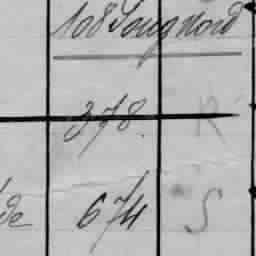 108 Long Nord
378. R
de 674 S